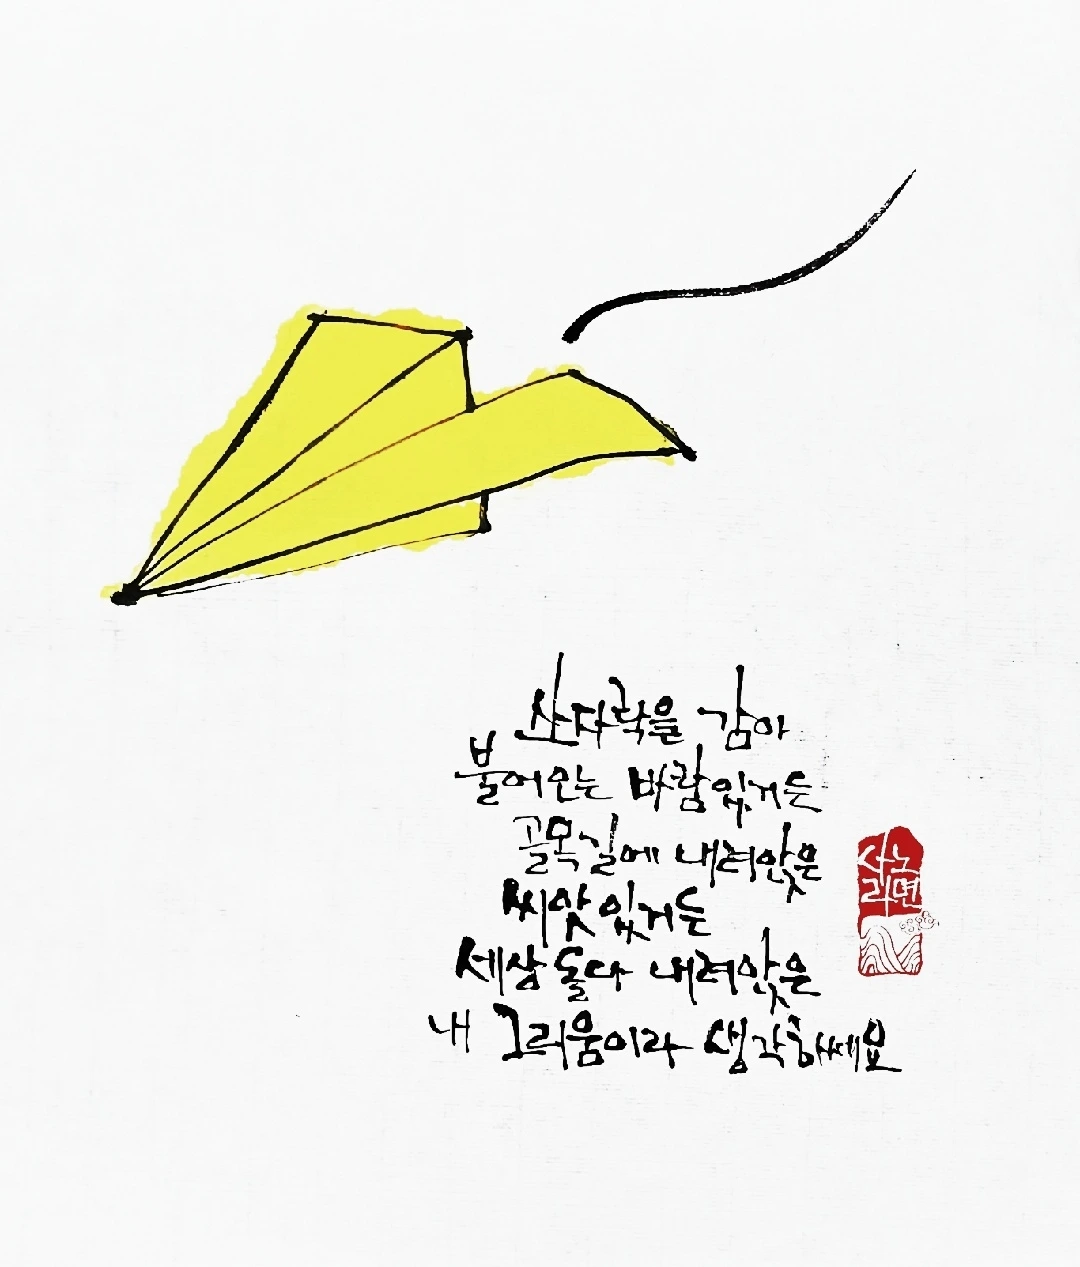 산자락을 감아
불어오는 바람있거든
골목길에 내려앉은
씨앗있거든
세상 돌다 내려앉은
내 그리움이라 생각하쎄요